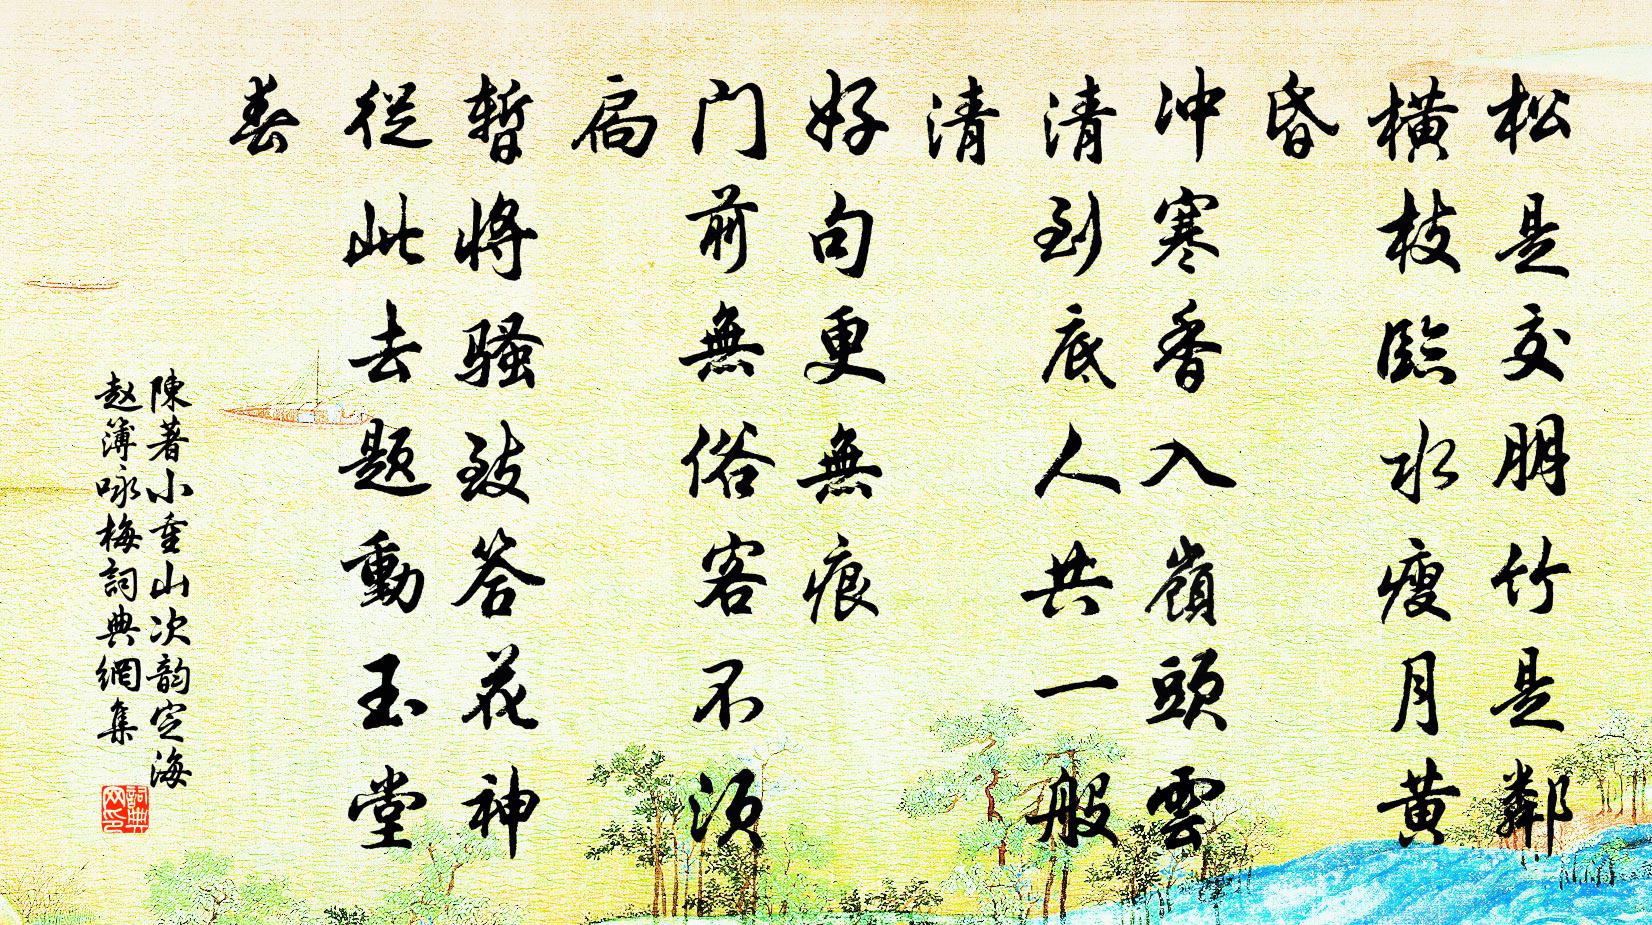 松是交朋竹是鄰
橫枝臨水瘦月黄
昏
冲寒香入嶺頭雲
清到底人共一般
清
好句更無痕
门前無俗客不須
扃
暫將騷致答花神
從此去題動玉堂
春
陳著小重山次韵定海
赵簿咏梅詞典網集